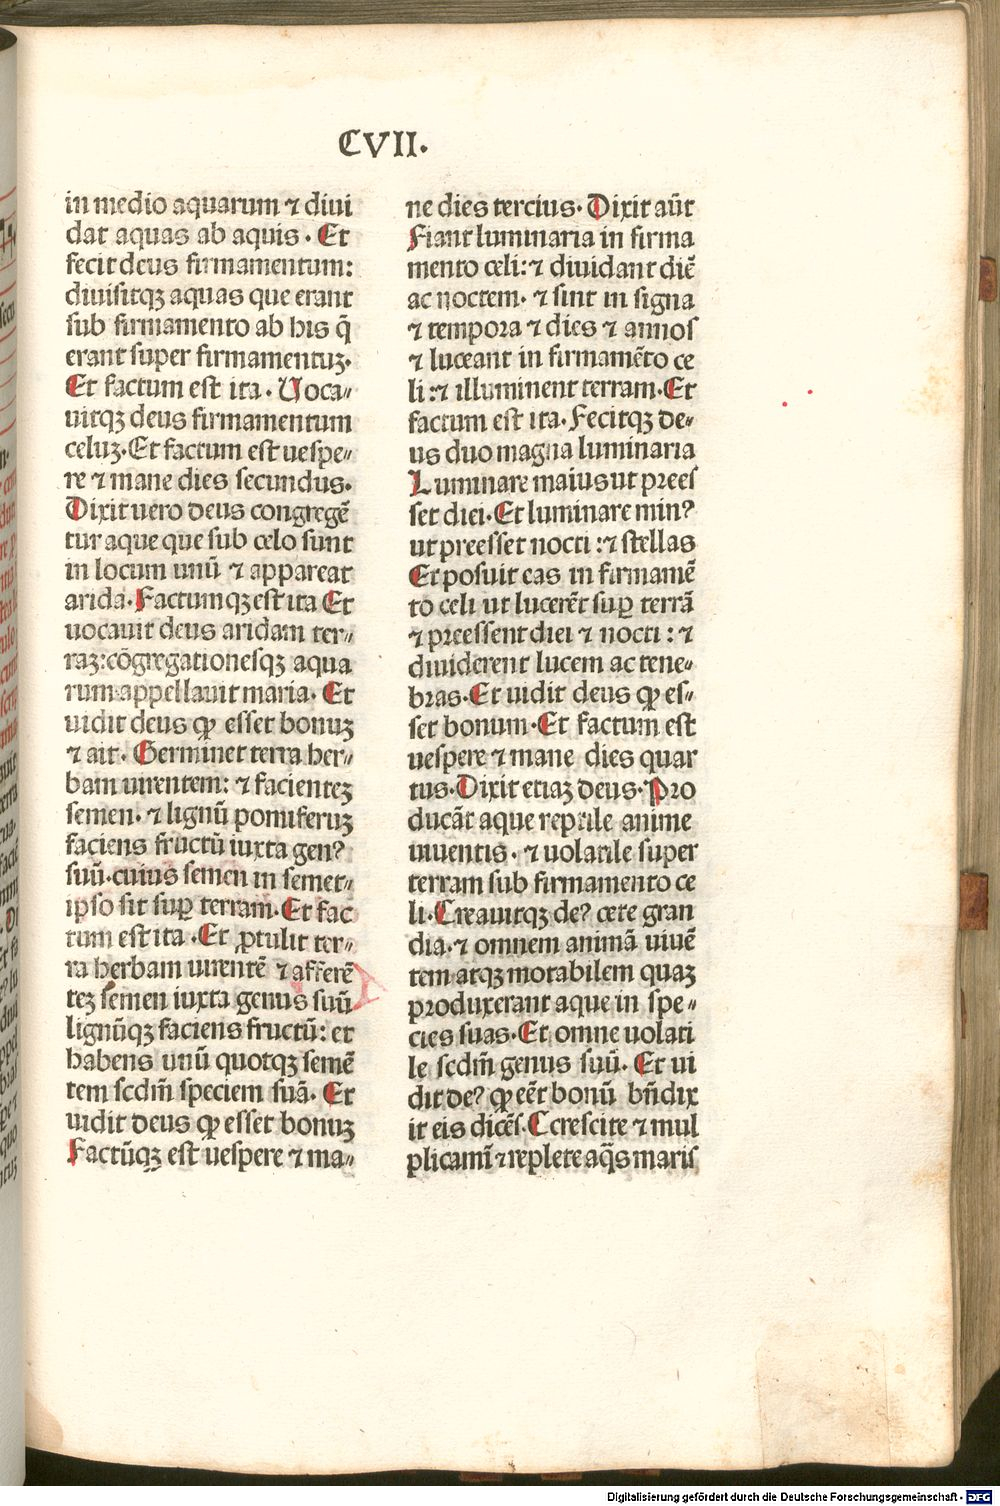 CVII.
in medio aquarum ⁊ diui
dat aquas ab aquis. Et
fecit deus firmamentum:
diuisitqꝫ aquas que erant
sub firmamento ab his q̄
erant super firmamentuꝫ.
Et factum est ita. Uoca⸗
uitqꝫ deus firmamentum
celuꝫ. Et factum est uespe⸗
re ⁊ mane dies secundus.
Dixit uero deus congregē
tur aque que sub celo sunt
in locum unū ⁊ appareat
arida. Factumqꝫ est ita Et
uocauit deus aridam ter⸗
raꝫ: cōgregationesqꝫ aqua
rum appellauit maria. Et
uidit deus ꝙ esset bonuꝫ
⁊ ait. Germinet terra her⸗
bam uirentem: ⁊ facienteꝫ
semen. ⁊ lignū pomiferuꝫ
faciens fructū iuxta genꝰ
suū. cuius semen in semet⸗
ipso sit suꝑ terram. Et fac
tum est ita. Et ꝓtulit ter⸗
ra herbam uirentē ⁊ afferē
teꝫ semen iuxta genus suū
lignūqꝫ faciens fructū: et
habens unū quotqꝫ semē
tem scdm̄ speciem suā. Et
uidit deus ꝙ esset bonuꝫ
Factūqꝫ est uespere ⁊ ma⸗
ne dies tercius. Dixit aūt
Fiant luminaria in firma
mento celi: ⁊ diuidant diē
ac noctem. ⁊ sint in signa
⁊ tempora ⁊ dies ⁊ annos
⁊ luceant in firmamēto ce
li: ⁊ illuminent terram. Et
factum est ita. Fecitqꝫ de⸗
us duo magna luminaria
Luminare maius ut prees
set diei. Et luminare minꝰ
ut preesset nocti: ⁊ stellas
Et posuit eas in firmamē
to celi ut lucerēt suꝑ terrā
⁊ preessent diei ⁊ nocti: ⁊
diuiderent lucem ac tene⸗
bras. Et uidit deus ꝙ es⸗
set bonum. Et factum est
uespere ⁊ mane dies quar
tus. Dixit etiaꝫ deus. Pro
ducāt aque reptile anime
uiuentis. ⁊ uolatile super
terram sub firmamento ce
li. Creauitqꝫ deꝰ cete gran
dia. ⁊ omnem animā uiuē
tem atqꝫ motabilem quaꝫ
produxerant aque in spe⸗
cies suas. Et omne uolati
le scdm̄ genus suū. Et ui
dit deꝰ ꝙ eēt bonū bn̄dix
it eis dicēs. Ccrescite ⁊ mul
plicamī ⁊ replete aq̄s maris
Digitalisierung gefördert durch die Deutsche Forschungsgemeinschaft - DFG